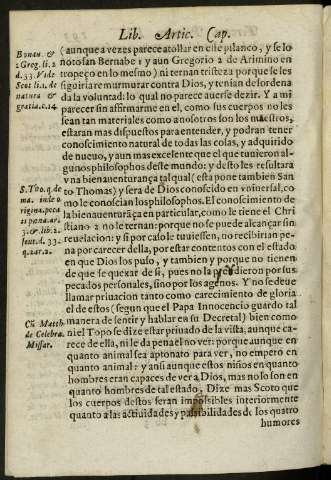 Lib. Artic. Cap.
Bonau. &
1. Greg. li. 2
d. 33. Vide
Scot li. 1. de
natura &
gratia. c. 14
(aunque a vezes parece atollar en este pilanco, y se lo
noto san Bernabe: y aun Gregorio a de Arimino en
tropeço en lo mesmo) ni ternan tristeza porque se les
siguiria remurmurar contra Dios, y tenian desordena
da la voluntad: lo qual no parece auerse dezir. Y a mi
parecer sin affirmarme en el, como sus cuerpos no les
sean tan materiales como a nosotros son los nuestros,
estaran mas dispuestos para entender, y podran tener
conocimiento natural de todas las cosas, y adquirido
de nueuo, y aun mas excelente que el que tuuieron al-
gunos philosophos deste mundo: y desto les resultara
vna bienauenturança tal qual (esta pone tambien San
S. Tho. q. de
to Thomas) y sera de Dios conoscido en vniuersal, co-
mo le conoscian los philosophos. El conoscimiento de
la bienauenturãça en particular, como le tiene el Chri
stiano a no le ternan: porque no se puede alcançar sin
reuelacion: y si por caso le tuuiessen, no recibirian pe-
na por carecer della, por estar contentos con el estado
en que Dios los puso, y tambien y porque no tienen
de que se quexar de si, pues no la perdieron por sus
pecados personales, sino por los agenos. Y no se deue
llamar priuacion tanto como carecimiento de gloria
el de estos (segun que el Papa Innocencio guardo tal
manera de sentir y hablar en su Decretal) bien como
Cũ Matth.
de Celebra.
Missar.
ni el Topo se dize estar priuado de la vista, aunque ca-
rece de ella, ni le da pena el no ver: porque aunque en
quanto animal sea aptonato para ver, no empero en
quanto animal: y ansi aunque estos niños en quanto
hombres eran capaces de ver a Dios, mas no lo son en
quanto hombres de tal estado, Dize mas Scoto que
los cuerpos destos seran impassibles interiormente
quanto a las actiuidades y passibilidades de los quatro
humores